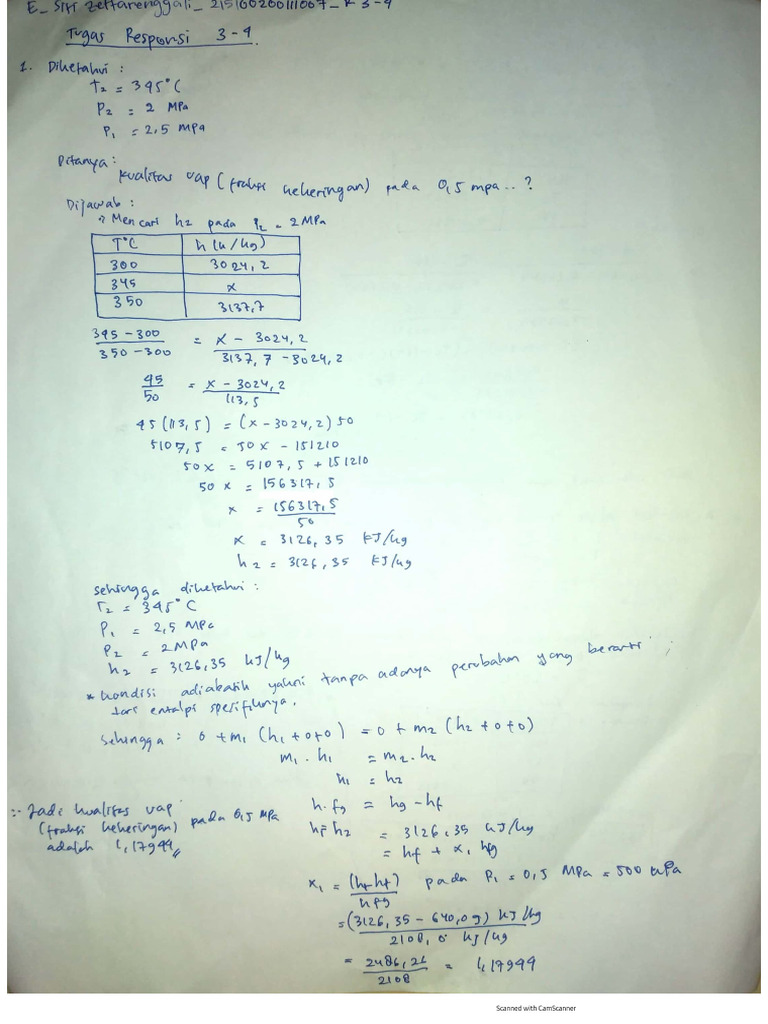 E_ Siti Zettarenggali_ 215100200111007_ K 3-4
Tugas Responsi 3-4.
1. Diketahui :
T2 = 345°C
P2 = 2 MPa
P1 = 2,5 MPa
Ditanya:
kualitas uap (fraksi kekeringan) pada 0,5 mpa..?
Dijawab :
Mencari h2 pada P2 = 2 MPa
T°C h (kJ/kg)
300 3024,2
345 x
350 3137,7
345 - 300 / 350 - 300 = x - 3024,2 / 3137,7 - 3024,2
45/50 = x - 3024,2 / 113,5
45 (113,5) = (x - 3024,2) 50
5107,5 = 50 x - 151210
50x = 5107,5 + 151210
50 x = 156317,5
x = 156317,5 / 50
x = 3126,35 kJ/kg
h2 = 3126,35 kJ/kg
sehingga diketahui :
T2 = 345°C
P1 = 2,5 MPa
P2 = 2 MPa
h2 = 3126,35 kJ/kg
* kondisi adiabatik yakni tanpa adanya perubahan yang berarti ;
dari entalpi spesifiknya.
Sehingga : 0 + m1 (h1 + 0 + 0) = 0 + m2 (h2 + 0 + 0)
m1 . h1 = m2 . h2
h1 = h2
h.fg = hg - hf
h1= h2 = 3126,35 kJ/kg
= hf + x1 hfg
x1 = (h1-hf) / hfg pada P1 = 0,5 MPa = 500 kPa
= (3126,35 - 640,09) kJ/kg / 2108,0 kJ/kg
= 2486,26 / 2108 = 1,17944
∴ Jadi kualitas uap
(fraksi kekeringan) pada 0,5 MPa
adalah 1,17944
Scanned with CamScanner